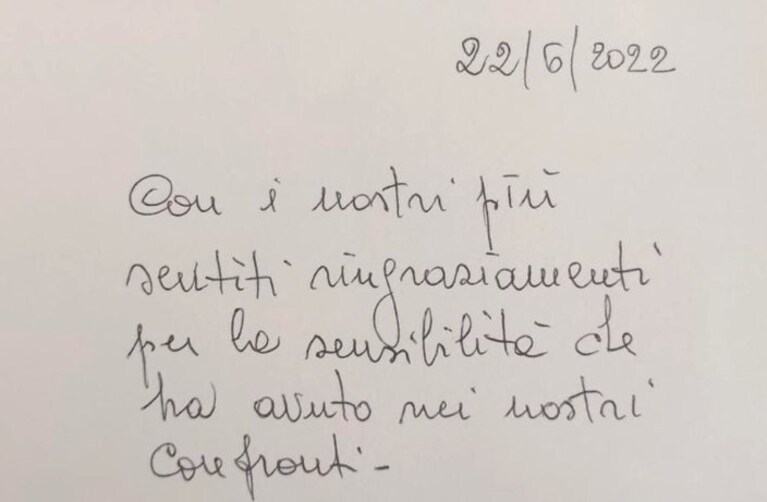 22/6/2022
Con i nostri più
sentiti ringraziamenti
per la sensibilità che
ha avuto nei nostri
confronti-